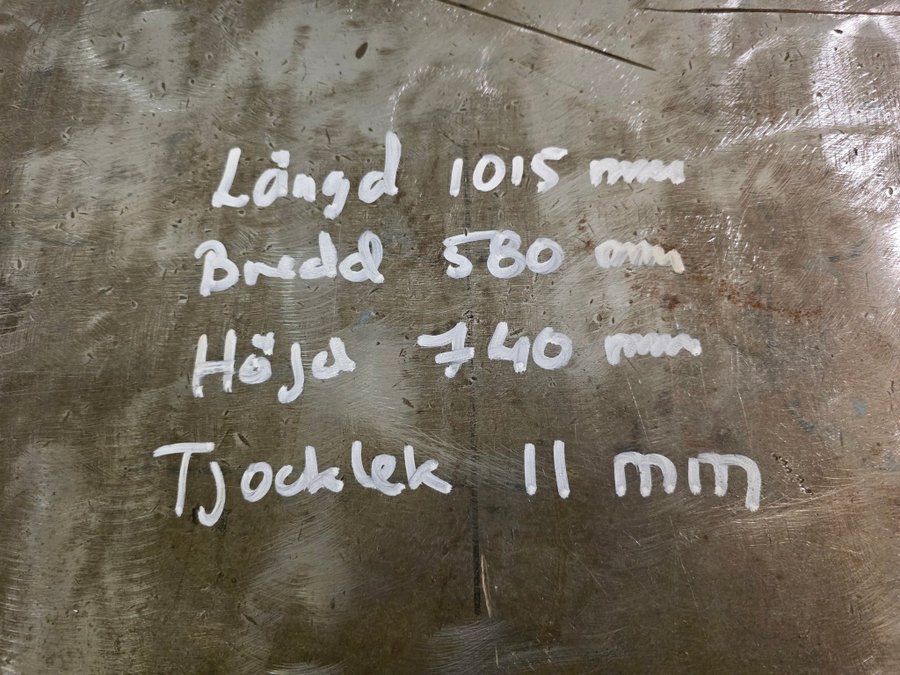 Längd 1015 mm
Bredd 580 mm
Höjd 740 mm
Tjocklek 11 mm